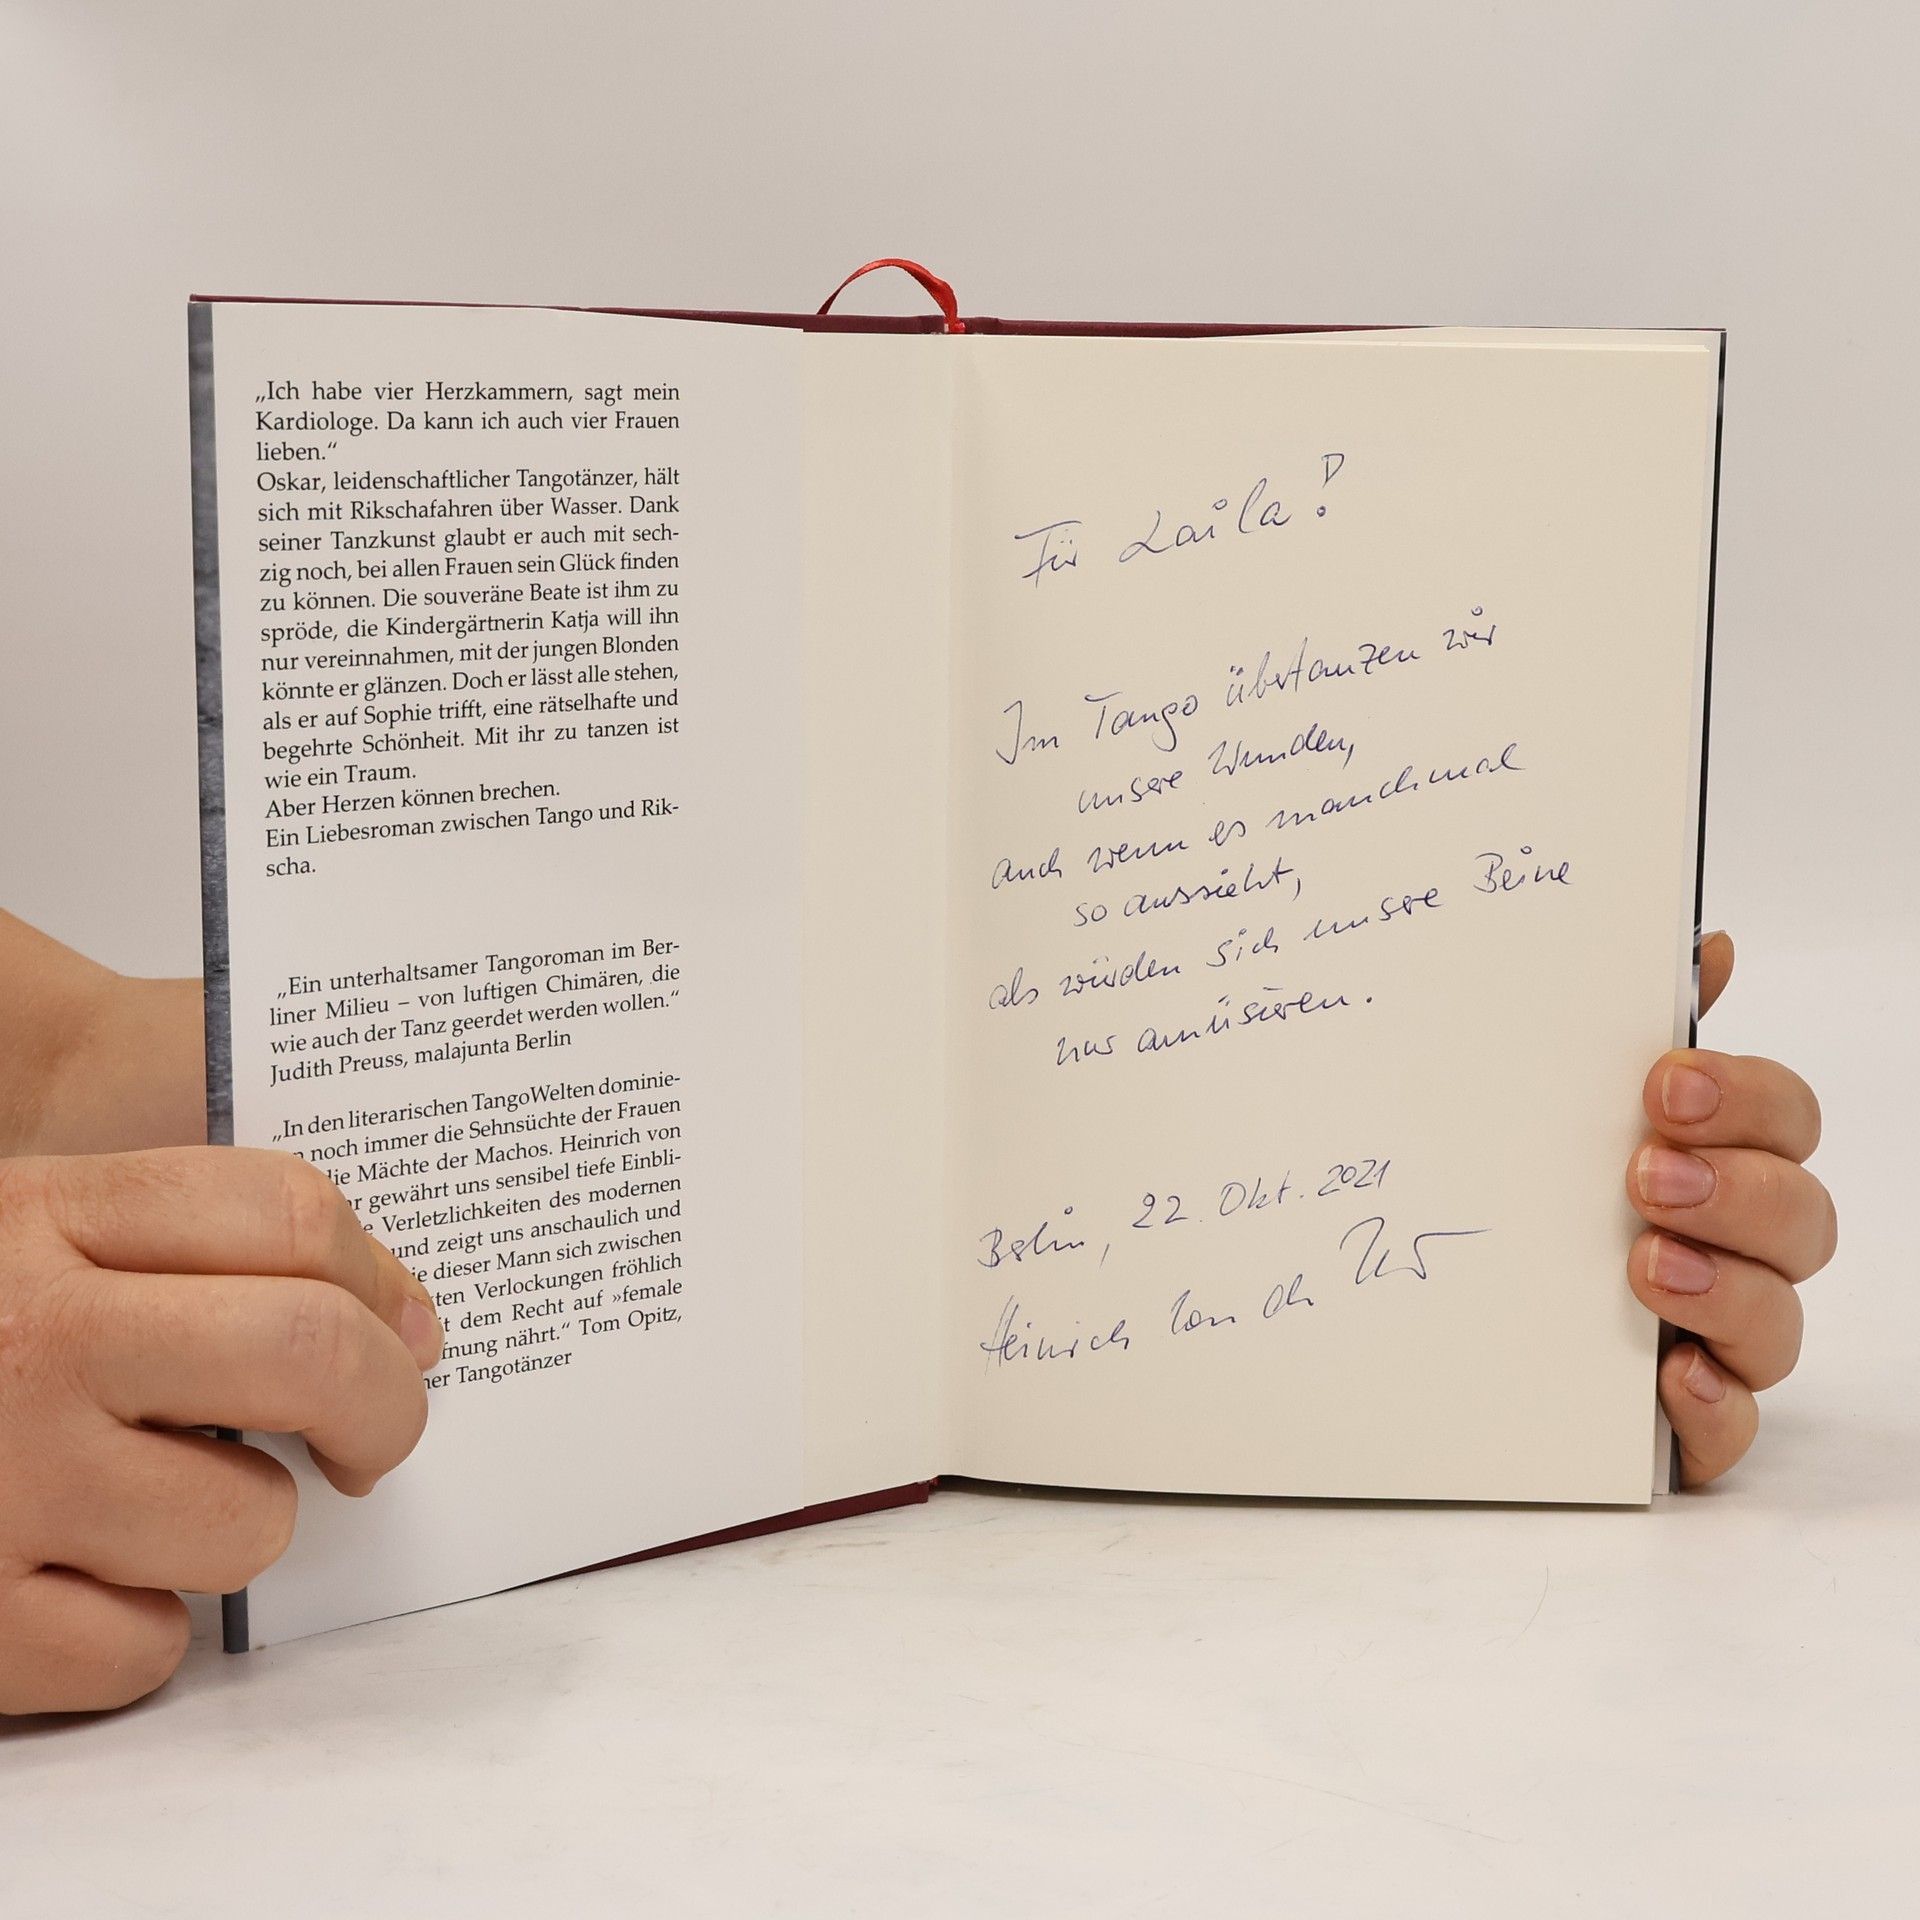 „Ich habe vier Herzkammern, sagt mein
Kardiologe. Da kann ich auch vier Frauen
lieben.“
Oskar, leidenschaftlicher Tangotänzer, hält
sich mit Rikschafahren über Wasser. Dank
seiner Tanzkunst glaubt er auch mit sech-
zig noch, bei allen Frauen sein Glück finden
zu können. Die souveräne Beate ist ihm zu
spröde, die Kindergärtnerin Katja will ihn
nur vereinnahmen, mit der jungen Blonden
könnte er glänzen. Doch er lässt alle stehen,
als er auf Sophie trifft, eine rätselhafte und
begehrte Schönheit. Mit ihr zu tanzen ist
wie ein Traum.
Aber Herzen können brechen.
Ein Liebesroman zwischen Tango und Rik-
scha.
„Ein unterhaltsamer Tangoroman im Ber-
liner Milieu – von luftigen Chimären, die
wie auch der Tanz geerdet werden wollen.“
Judith Preuss, malajunta Berlin
„In den literarischen TangoWelten dominie-
noch immer die Sehnsüchte der Frauen
die Mächte der Machos. Heinrich von
gewährt uns sensibel tiefe Einbli-
Verletzlichkeiten des modernen
und zeigt uns anschaulich und
dieser Mann sich zwischen
Verlockungen fröhlich
dem Recht auf »female
nährt.“ Tom Opitz,
Tangotänzer
Für Laila!
Im Tango übertanzen wir
unsere Wunden,
auch wenn es manchmal
so aussieht,
als würden sich unsere Beine
nur amüsieren.
Berlin, 22. Okt. 2021
Heinrich von der